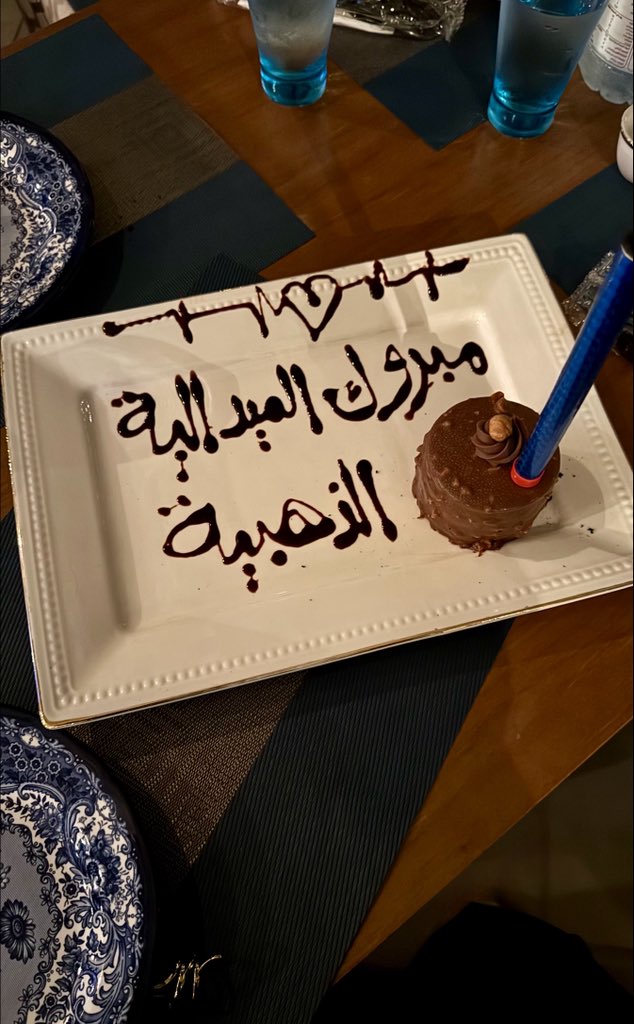 مبروك الميدالية
الذهبية